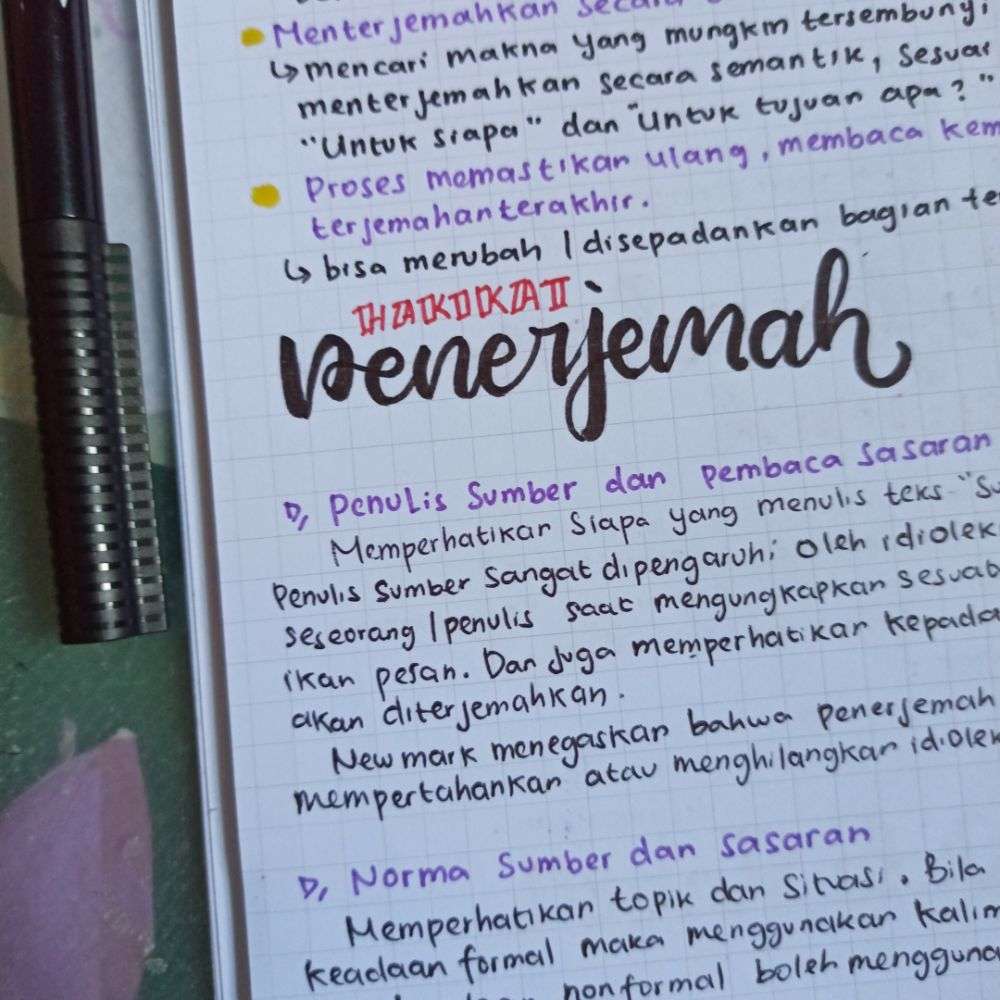 Menterjemahkan secara
↳ mencari makna yang mungkin tersembunyi
menterjemahkan secara semantik, sesuai
"Untuk siapa" dan "Untuk tujuan apa?"
Proses memastikan ulang, membaca
terjemahan terakhir.
↳ bisa merubah / disepadankan bagian
HAKIKAT
penerjemah
D, Penulis Sumber dan pembaca sasaran
Memperhatikan siapa yang menulis teks
Penulis sumber sangat dipengaruhi oleh idiolek
seseorang / penulis saat mengungkapkan
ikan pesan. Dan juga memperhatikan kepada
akan diterjemahkan.
Newmark menegaskan bahwa penerjemah
mempertahankan atau menghilangkan idiolek
D, Norma Sumber dan sasaran
Memperhatikan topik dan situasi. Bila
keadaan formal maka menggunakan
nonformal boleh